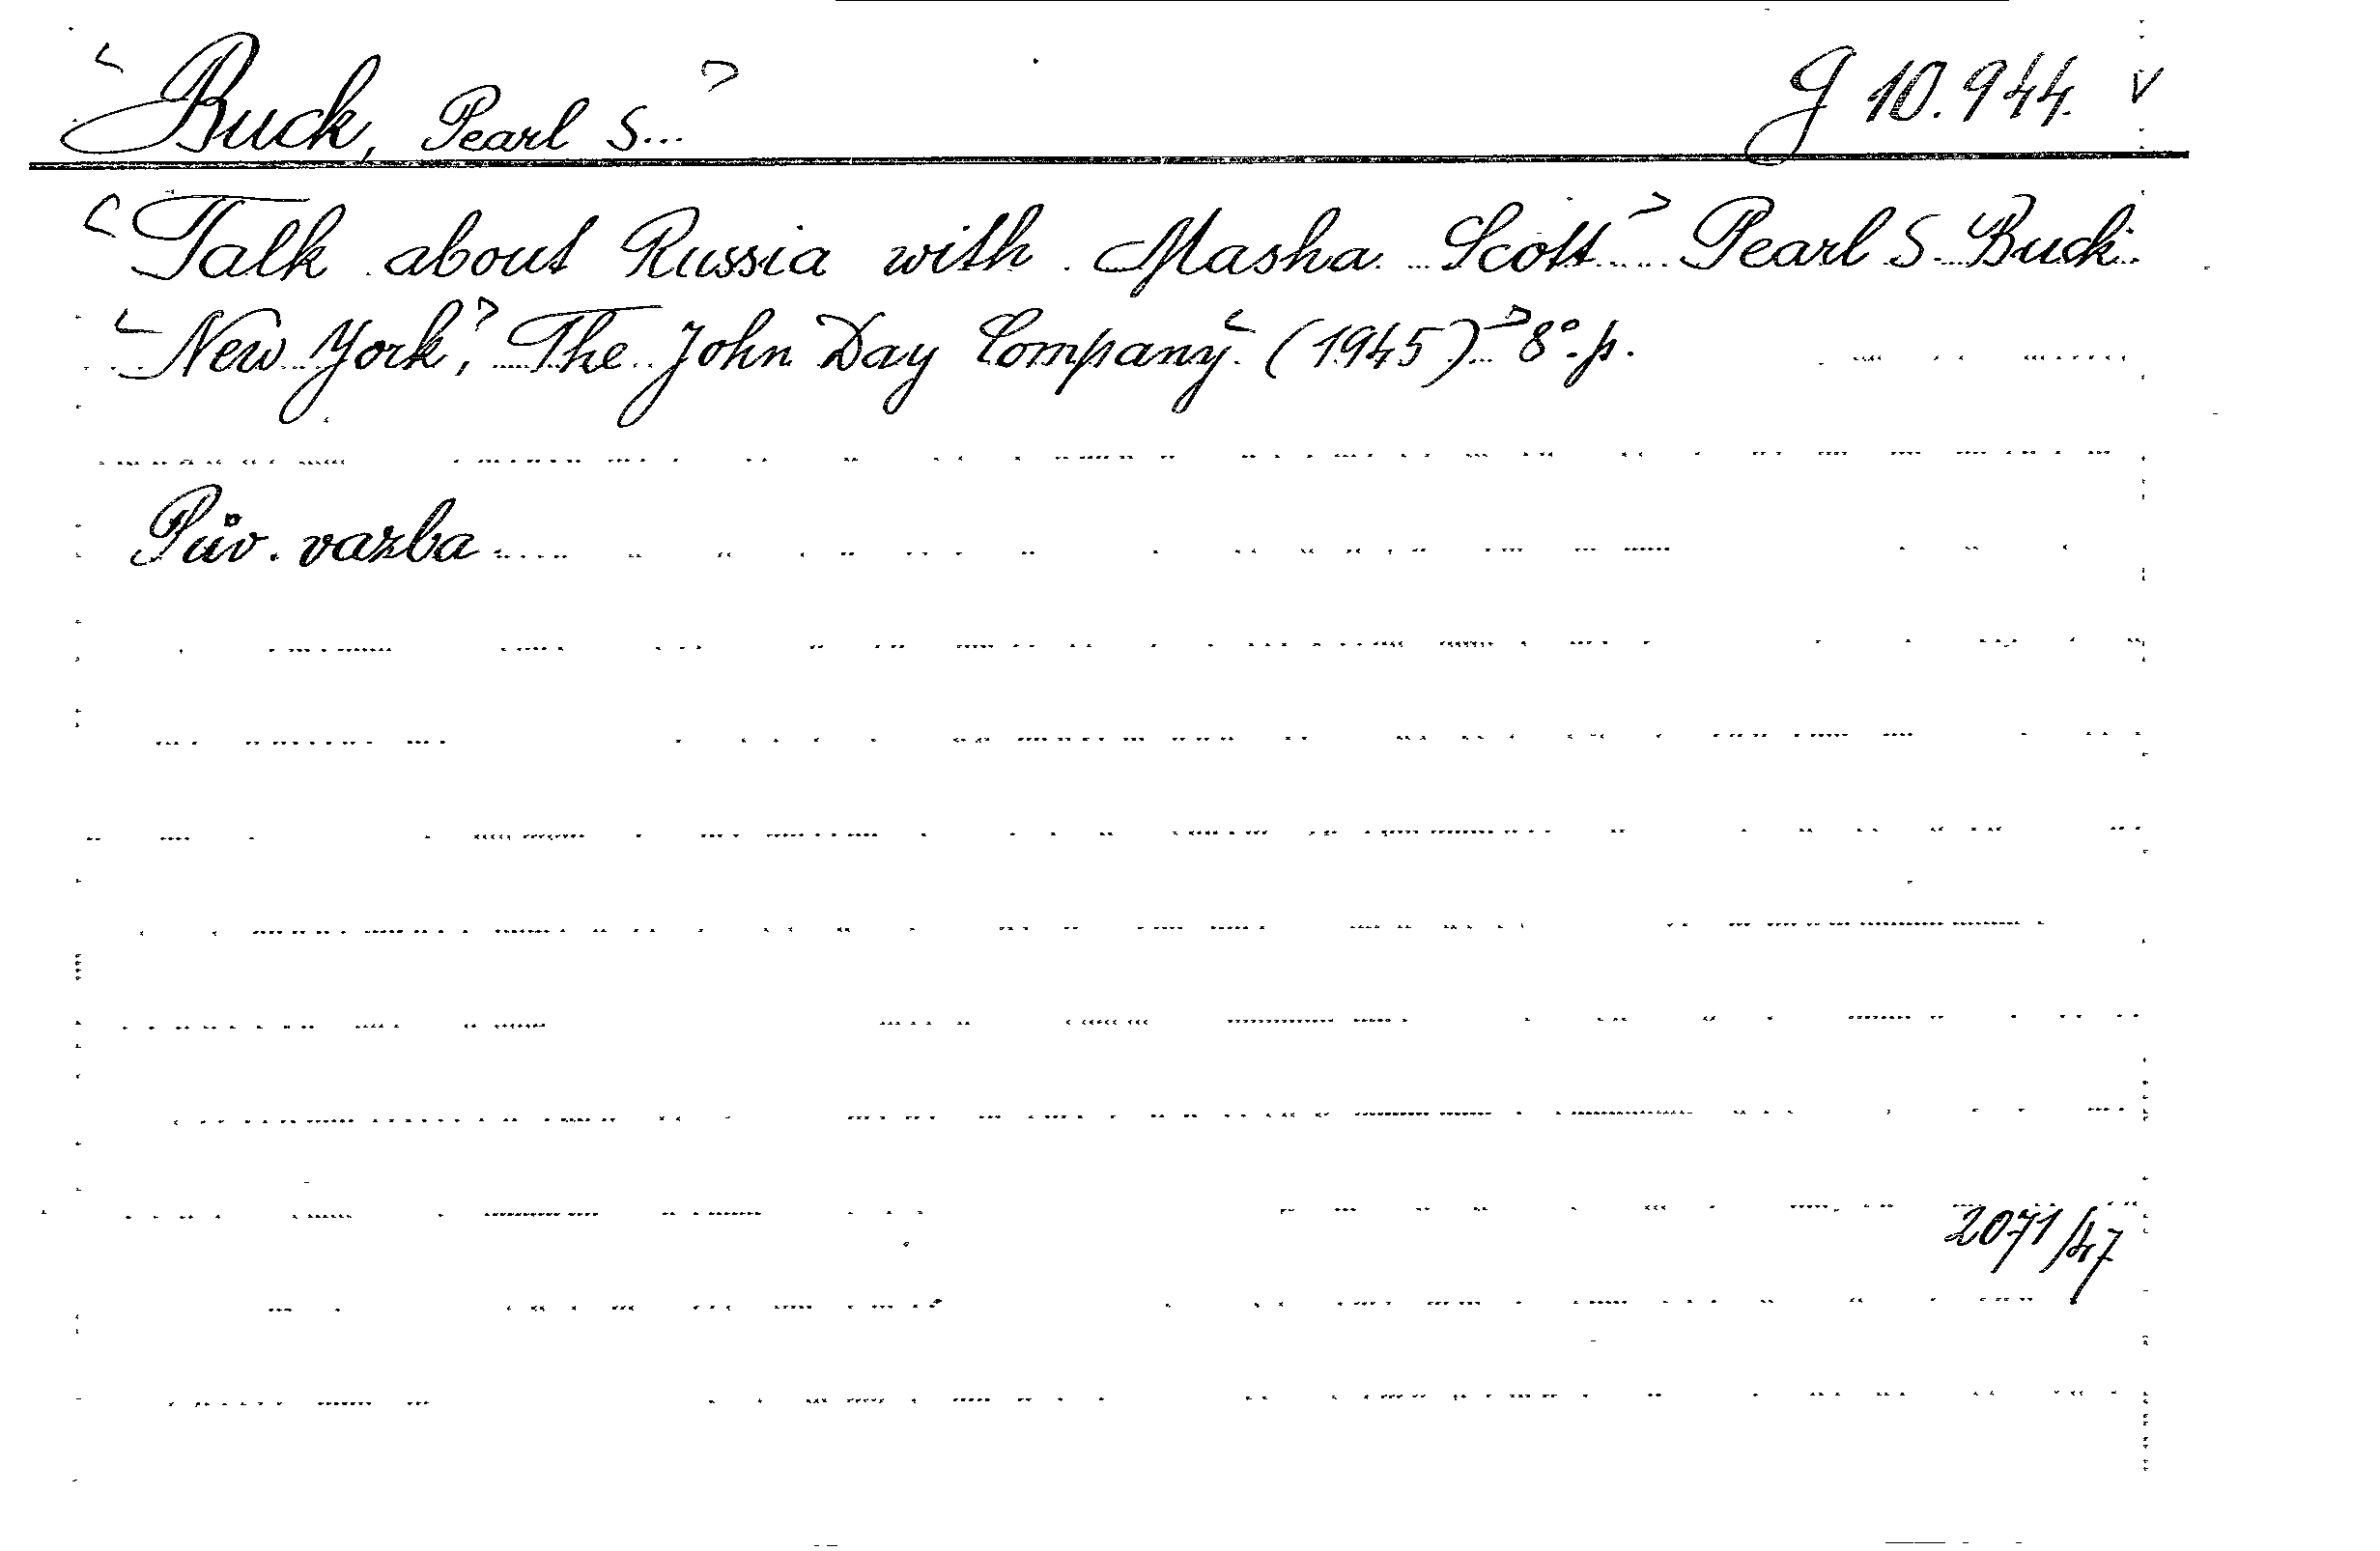 Buck, Pearl S... g 10.944. v
Talk about Russia with Masha Scott Pearl S. Buck.
New York, The John Day Company (1945) 8°. p.
Pův. vazba
2071/47